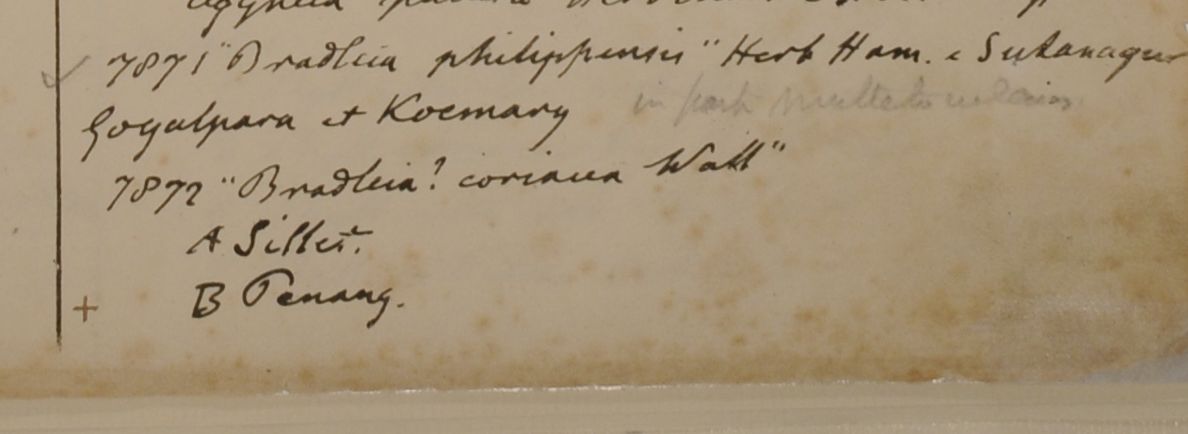 7871 "Bradleia philippensis" Herb Ham. e Sukanagur
Gogalpara et Koemary in part
7872 "Bradleia? coriacea Wall"
A Sillet.
B Penang.
+